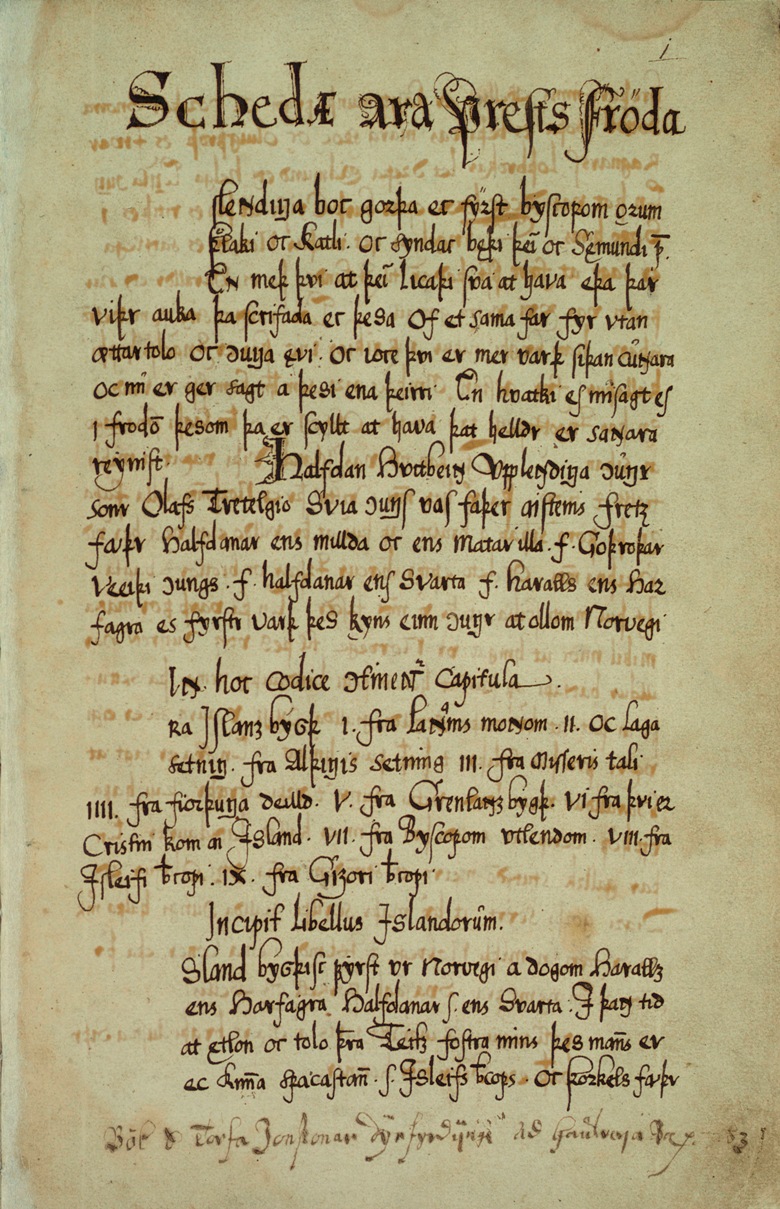 1
Schedæ ara prests fröda
slendiŋa boc gorþa ec fyrst byscopom orum
þlaki oc Katli. oc syndac beþi þeī oc Sęmundi p̄.
En meþ þvi at þeī licaþi sva at hava eþa þar
viþr auka þa scrifada ec þesa Of et sama far fyr vtan
ættartolo oc ɔuŋa ęvi. oc ioce þvi er mer varþ siþan cūɴara
oc nu er ger sagt a þesi ena þeirri En hvatki es missagt es
i frodō þesom þa er scyllt at hava þat helldr er saɴara
reynist. Halfdan Hvitbeiɴ Vpplendiŋa ɔūŋr
sonr Olafs Tretelgio Svia ɔuŋs vas faþer aisteins fretz
faþr Halfdanar ens millda oc ens matar illa. f. Goþroþar
Veiþi ɔungs. f. halfdanar ens Svarta f. haralls ens Har
fagra es fyrstr varþ þes kyns einn ɔuŋr at ollom Norvegi
Iɴ hoc codice ɔtineɴt᷑ Capitula.
ra Islanz bygþ I. fra laɴāms moɴom. II. oc laga
setniŋ. fra Alþiŋis setning III. fra Misseris tali
IIII. fra fiorþuŋa deilld. V. fra Grenlanz bygþ. VI fra þvi er
Cristni kom ai Island. VII. fra Byscopom vtlendom. VIII. fra
Isleifi b̄copi. IX. fra Gizori b̄copi
Incipit libellus Islandorūm.
Sland bygþisc fyrst vr Norvegi a dogom Haralz
ens Harfagra Halfdanar s. ens Svarta. I þaɴ tid
at ętlon oc tolo þra Teitz fostra mins þes mans er
ec kuɴa spacastan̄. s. Isleifs b̄cops. Oc þorkels faþr
Bök S Torfa Jonssonar